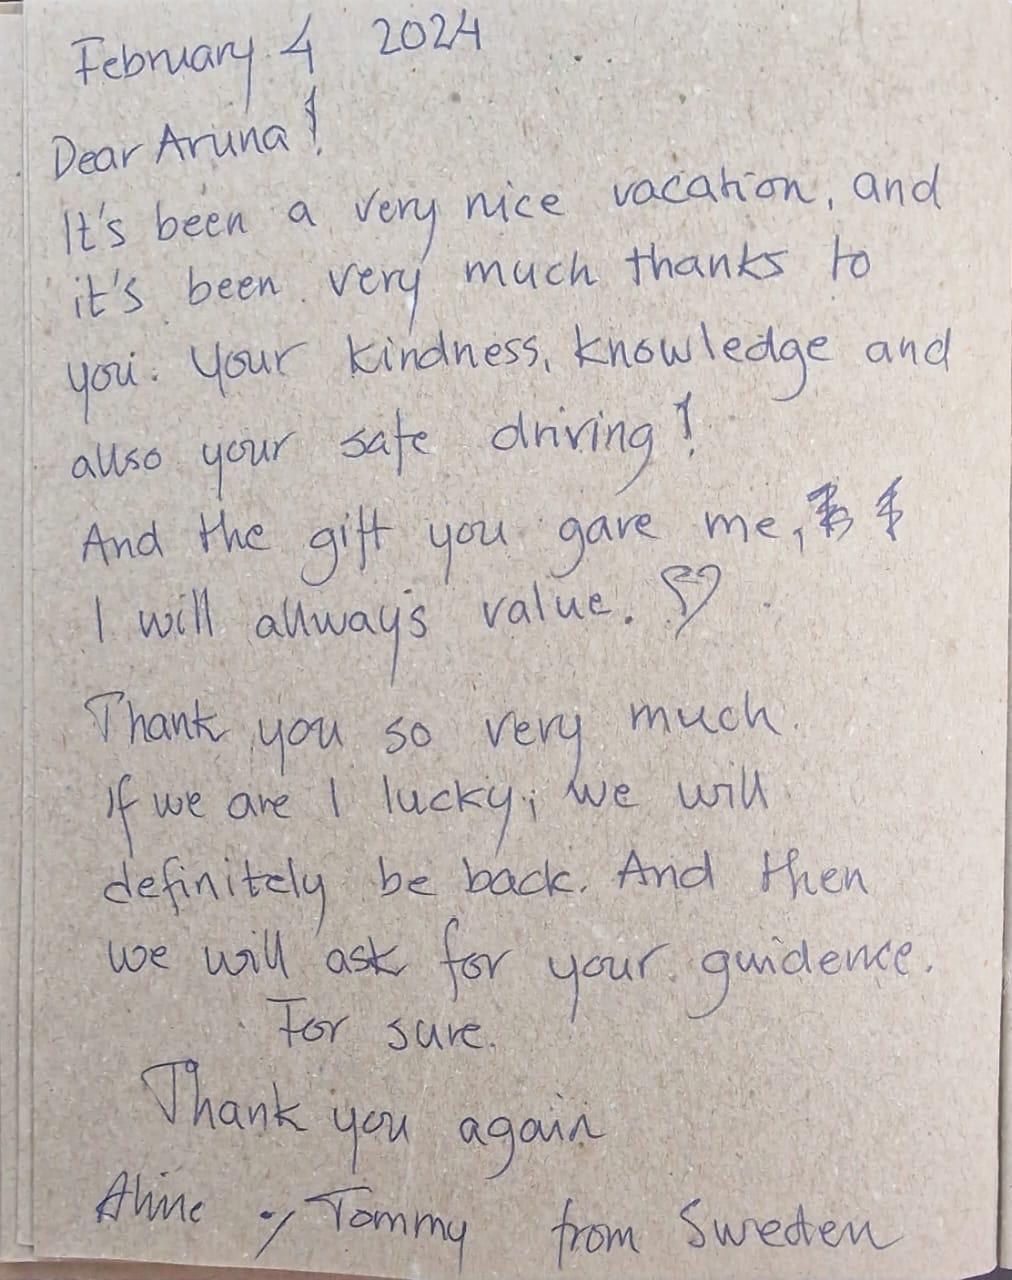 February 4 2024
Dear Aruna!
It's been a very nice vacation, and
it's been very much thanks to
you. Your kindness, knowledge and
allso your safe driving!
And the gift you gave me,
I will allways value. ♡
Thank you so very much.
If we are I lucky, we will
definitely be back. And then
we will ask for your guidence.
For sure.
Thank you again
Tommy from Sweden